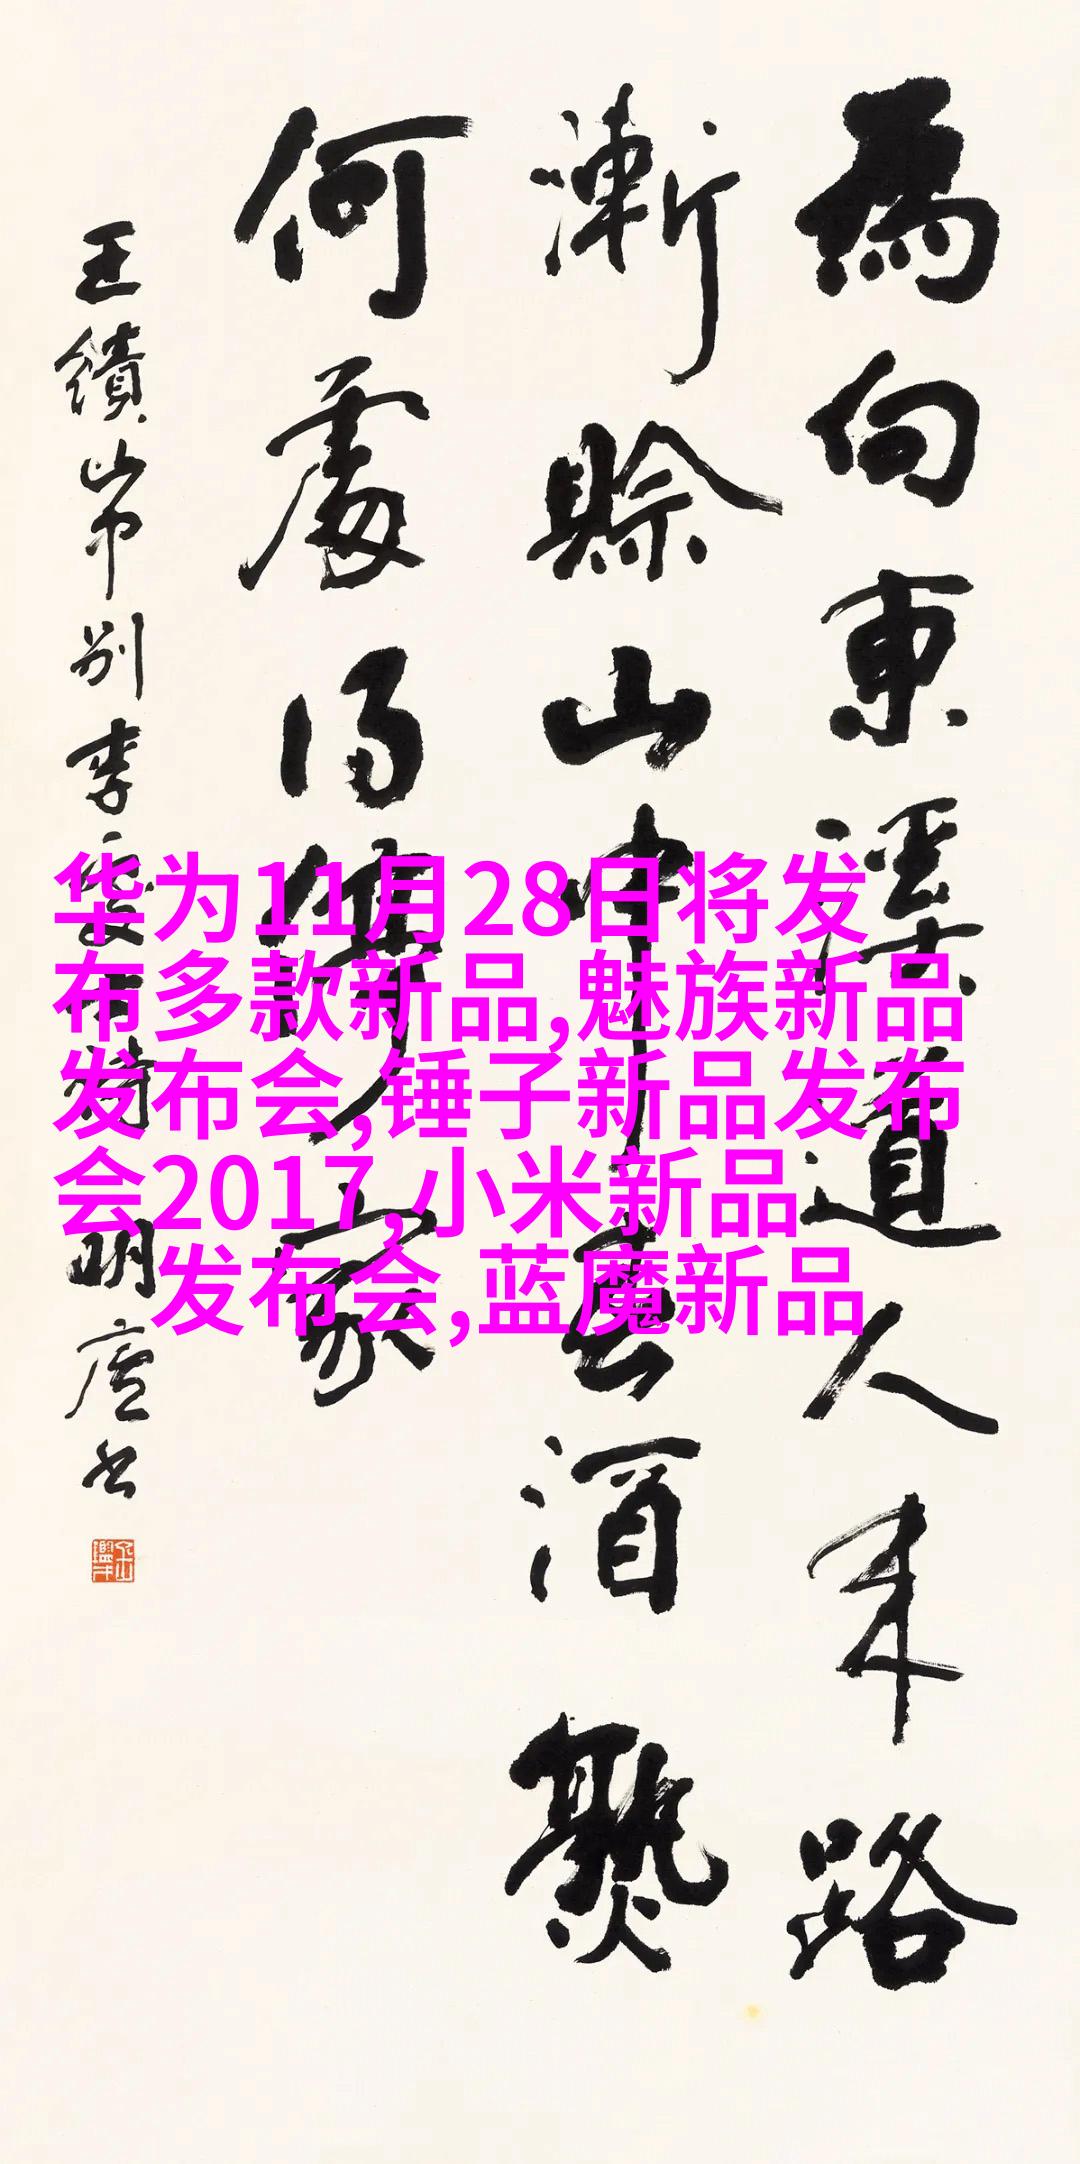 為向東溪道人来路
漸賒山中春酒熟
何處得停家
王績山中別李處士詩 明廬书
华为11月28日将发
布多款新品,魅族新品
发布会,锤子新品发布
会2017,小米新品
发布会,蓝魔新品